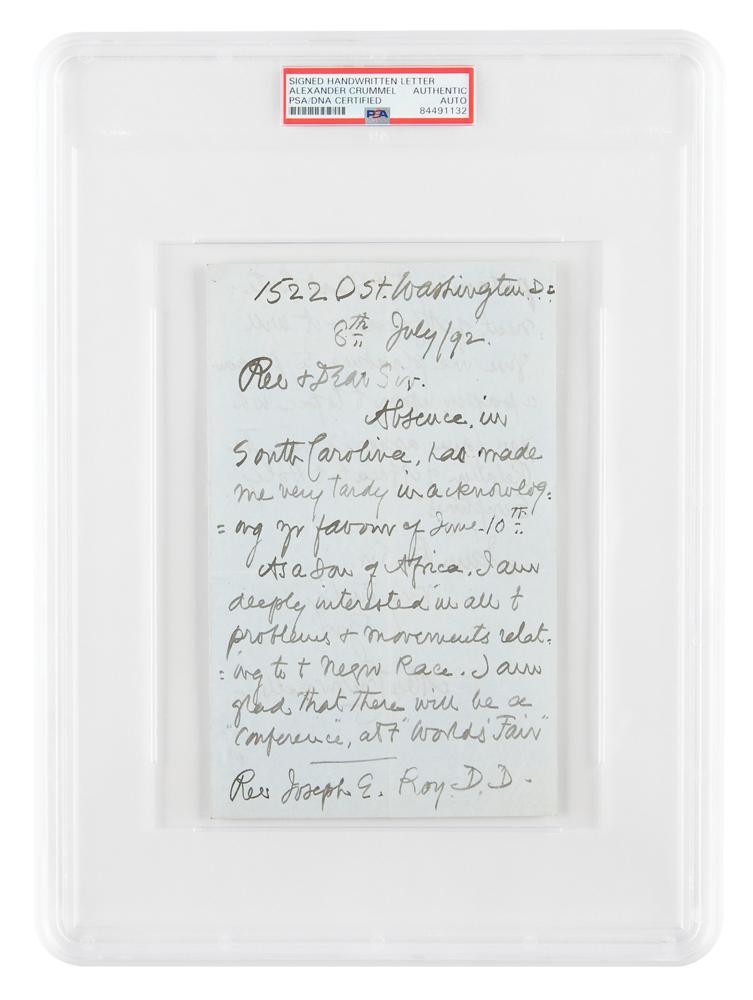 SIGNED HANDWRITTEN LETTER
ALEXANDER CRUMMEL AUTHENTIC
PSA/DNA CERTIFIED AUTO
PSA 84491132
1522 O St. Washington. D.C
8th July/92.
Rev + Dear Sir.
Absence, in
South Carolina, has made
me very tardy in acknowledg=
=ing yr favour of June 10th.
As a Son of Africa. I am
deeply interested in all t
problems + movements relat=
=ing to t Negro Race. I am
glad that there will be a
"Conference", at t "Worlds' Fair"
Rev Joseph E. Roy. D. D.